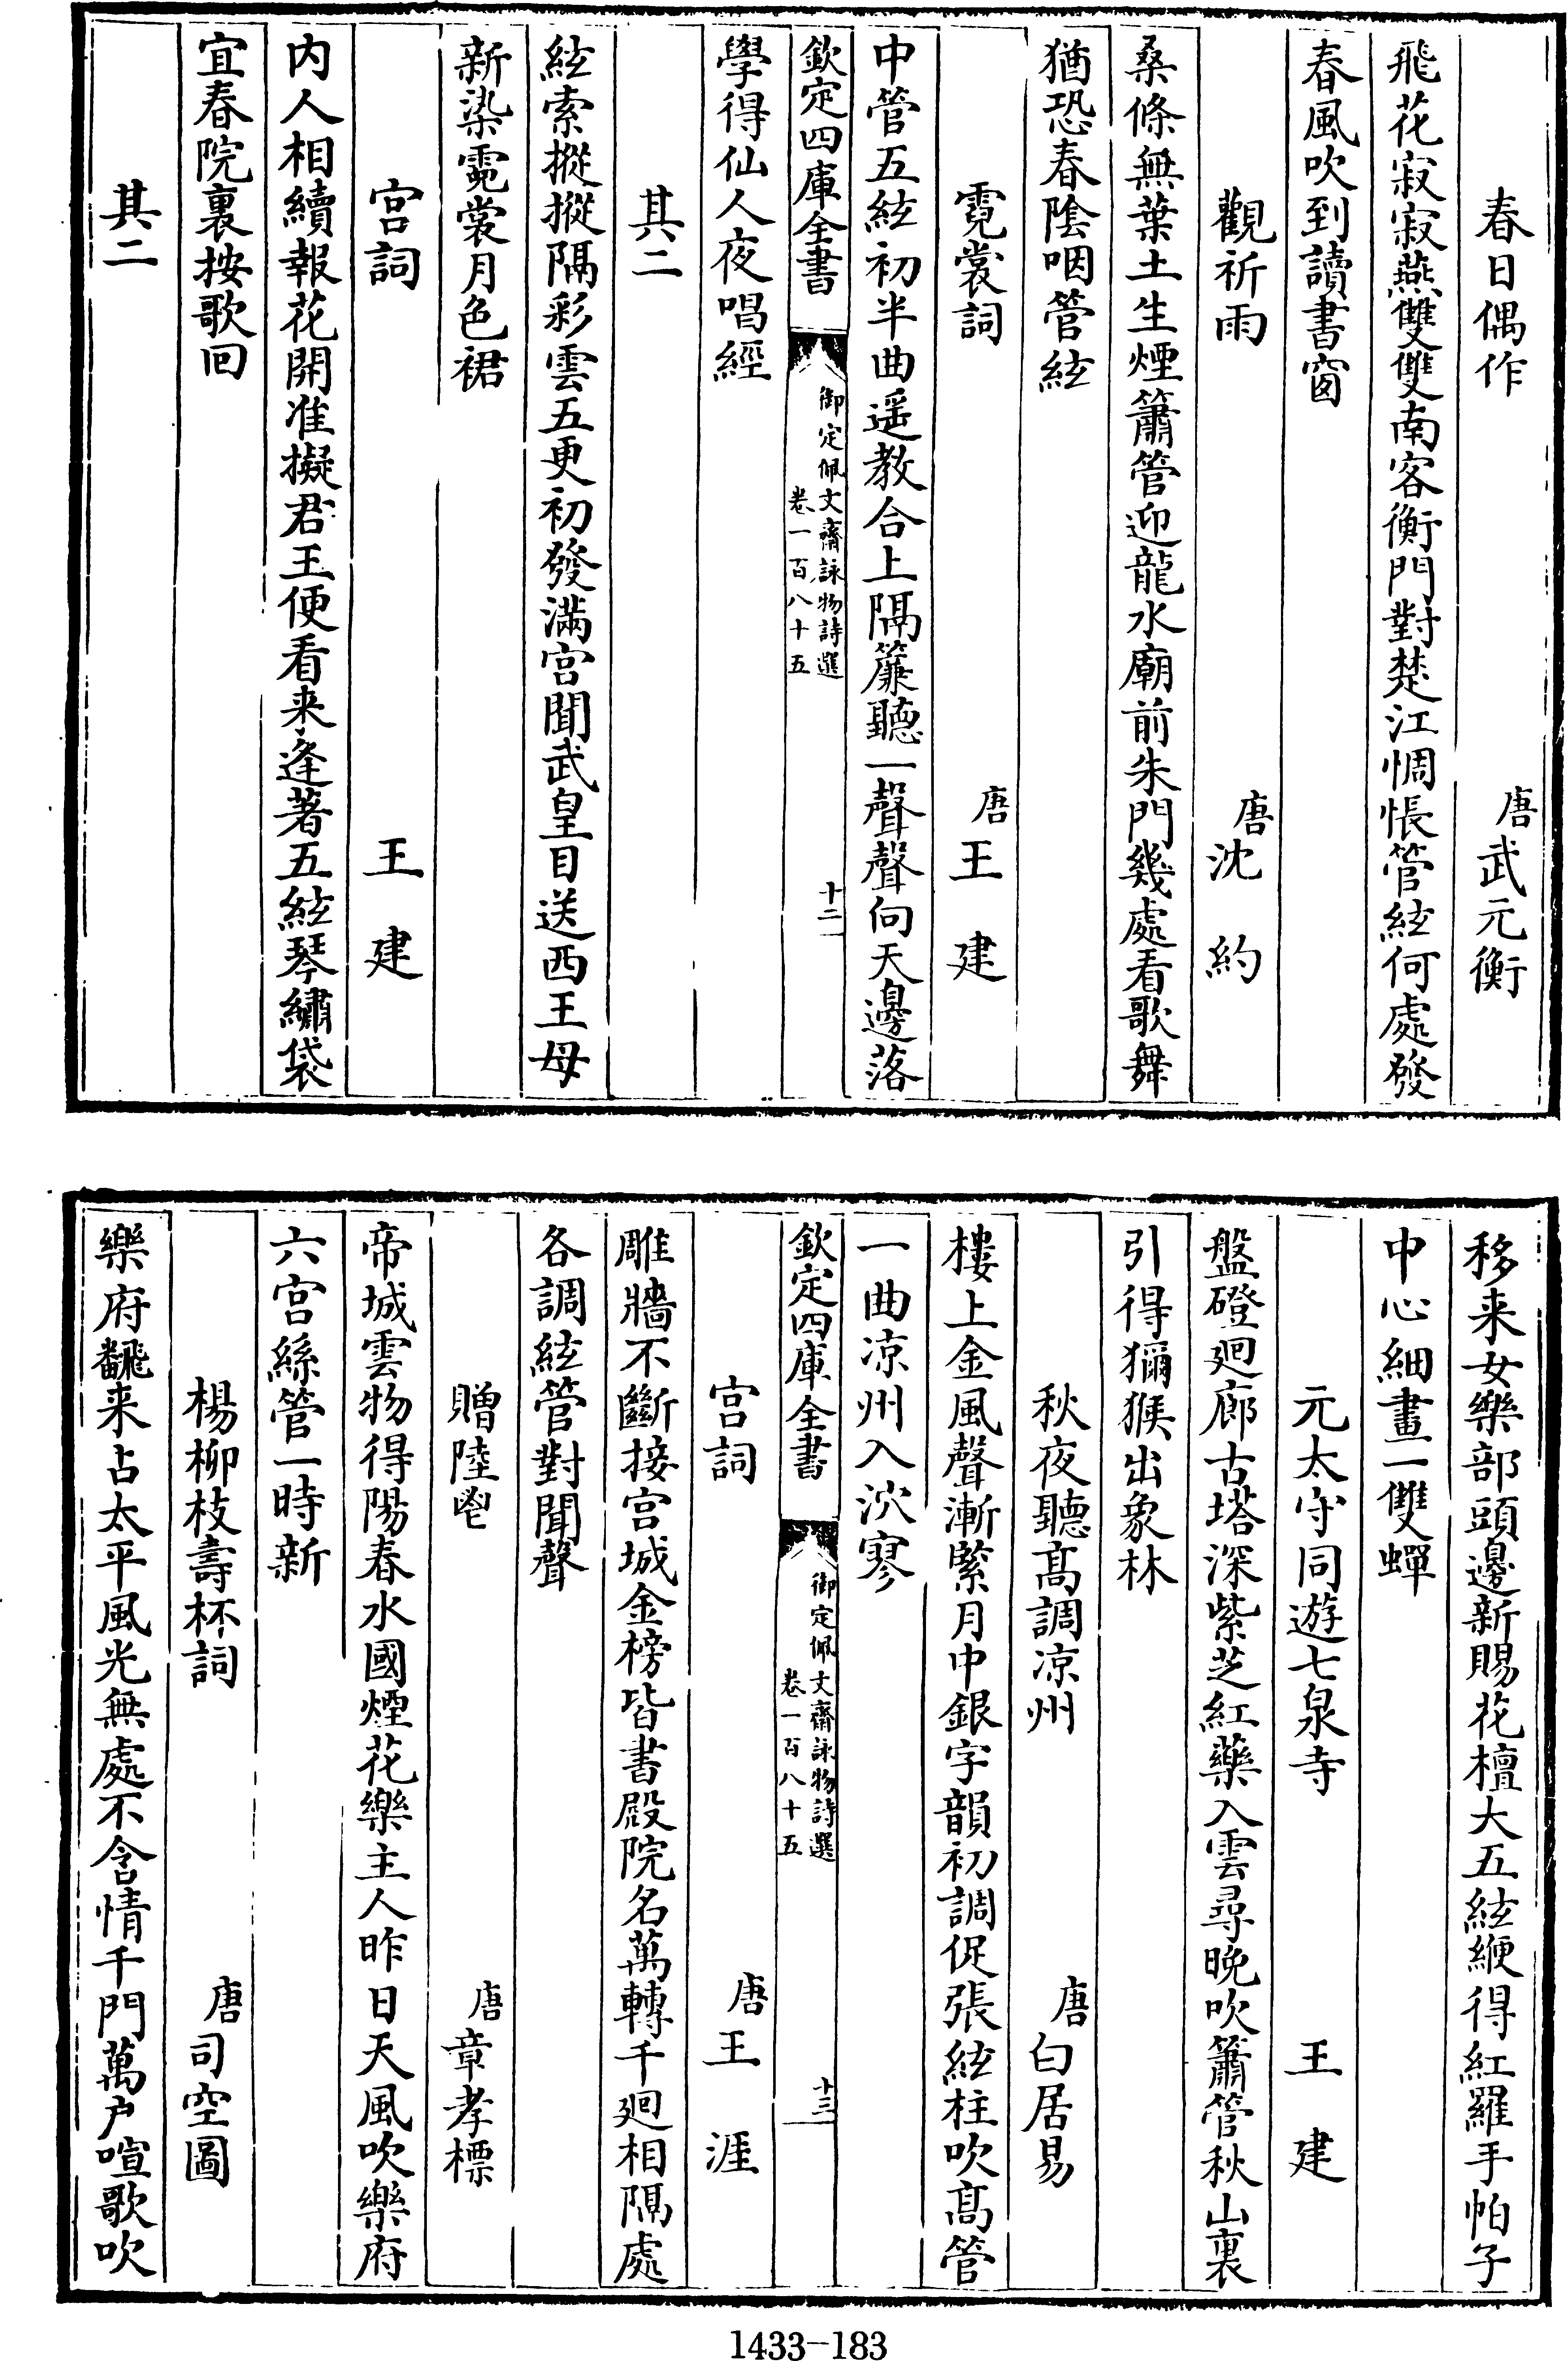 春日偶作 唐武元衡
飛花寂寂燕雙雙南客衡門對楚江惆悵管絃何處發
春風吹到讀書窗
觀祈雨 唐沈約
桑條無葉土生煙簫管迎龍水廟前朱門幾處看歌舞
猶恐春陰咽管絃
霓裳詞 唐王建
中管五絃初半曲遥教合上隔簾聽一聲聲向天邊落
欽定四庫全書 御定佩文齋詠物詩選 卷一百八十五 十二
學得仙人夜唱經
其二
絃索摐摐隔彩雲五更初發滿宫聞武皇目送西王母
新染霓裳月色裙
宫詞 王建
内人相續報花開准擬君王便看来逢著五絃琴繡袋
宜春院裏按歌回
其二
移来女樂部頭邊新賜花檀大五絃緶得紅羅手帕子
中心細畫一雙蟬
元太守同遊七泉寺 王建
盤磴廻廊古塔深紫芝紅藥入雲尋晚吹簫管秋山裏
引得獼猴出象林
秋夜聽髙調凉州 唐白居易
樓上金風聲漸緊月中銀字韻初調促張絃柱吹髙管
一曲凉州入泬寥
欽定四庫全書 御定佩文齋詠物詩選 卷一百八十五 十三
宫詞 唐王涯
雕牆不斷接宫城金榜皆書殿院名萬轉千廻相隔處
各調絃管對聞聲
贈陸鬯 唐章孝標
帝城雲物得陽春水國煙花樂主人昨日天風吹樂府
六宫絲管一時新
楊柳枝壽杯詞 唐司空圖
樂府翻来占太平風光無處不含情千門萬户喧歌吹
1433-183